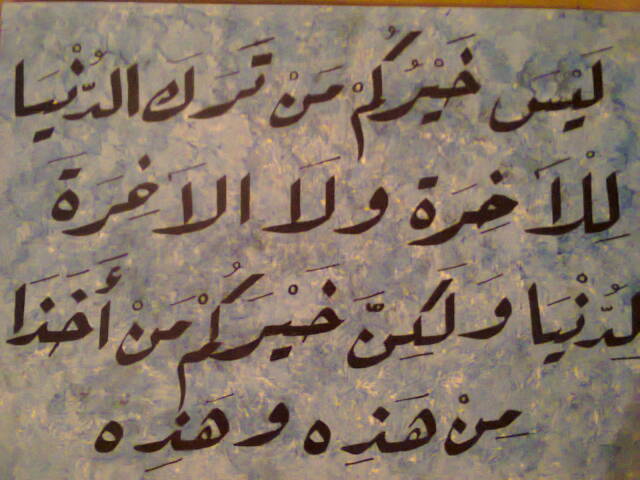 لَيْسَ خَيْرُكُمْ مَنْ تَرَكَ الدُّنْيَا
لِلْاَخِرَة وَلَا الاَخِرَةَ
لِدُّنْيَا وَلَكِنَّ خَيْرَكُمْ مَنْ أَخَذَا
مِنْ هَذِه وهَذِه